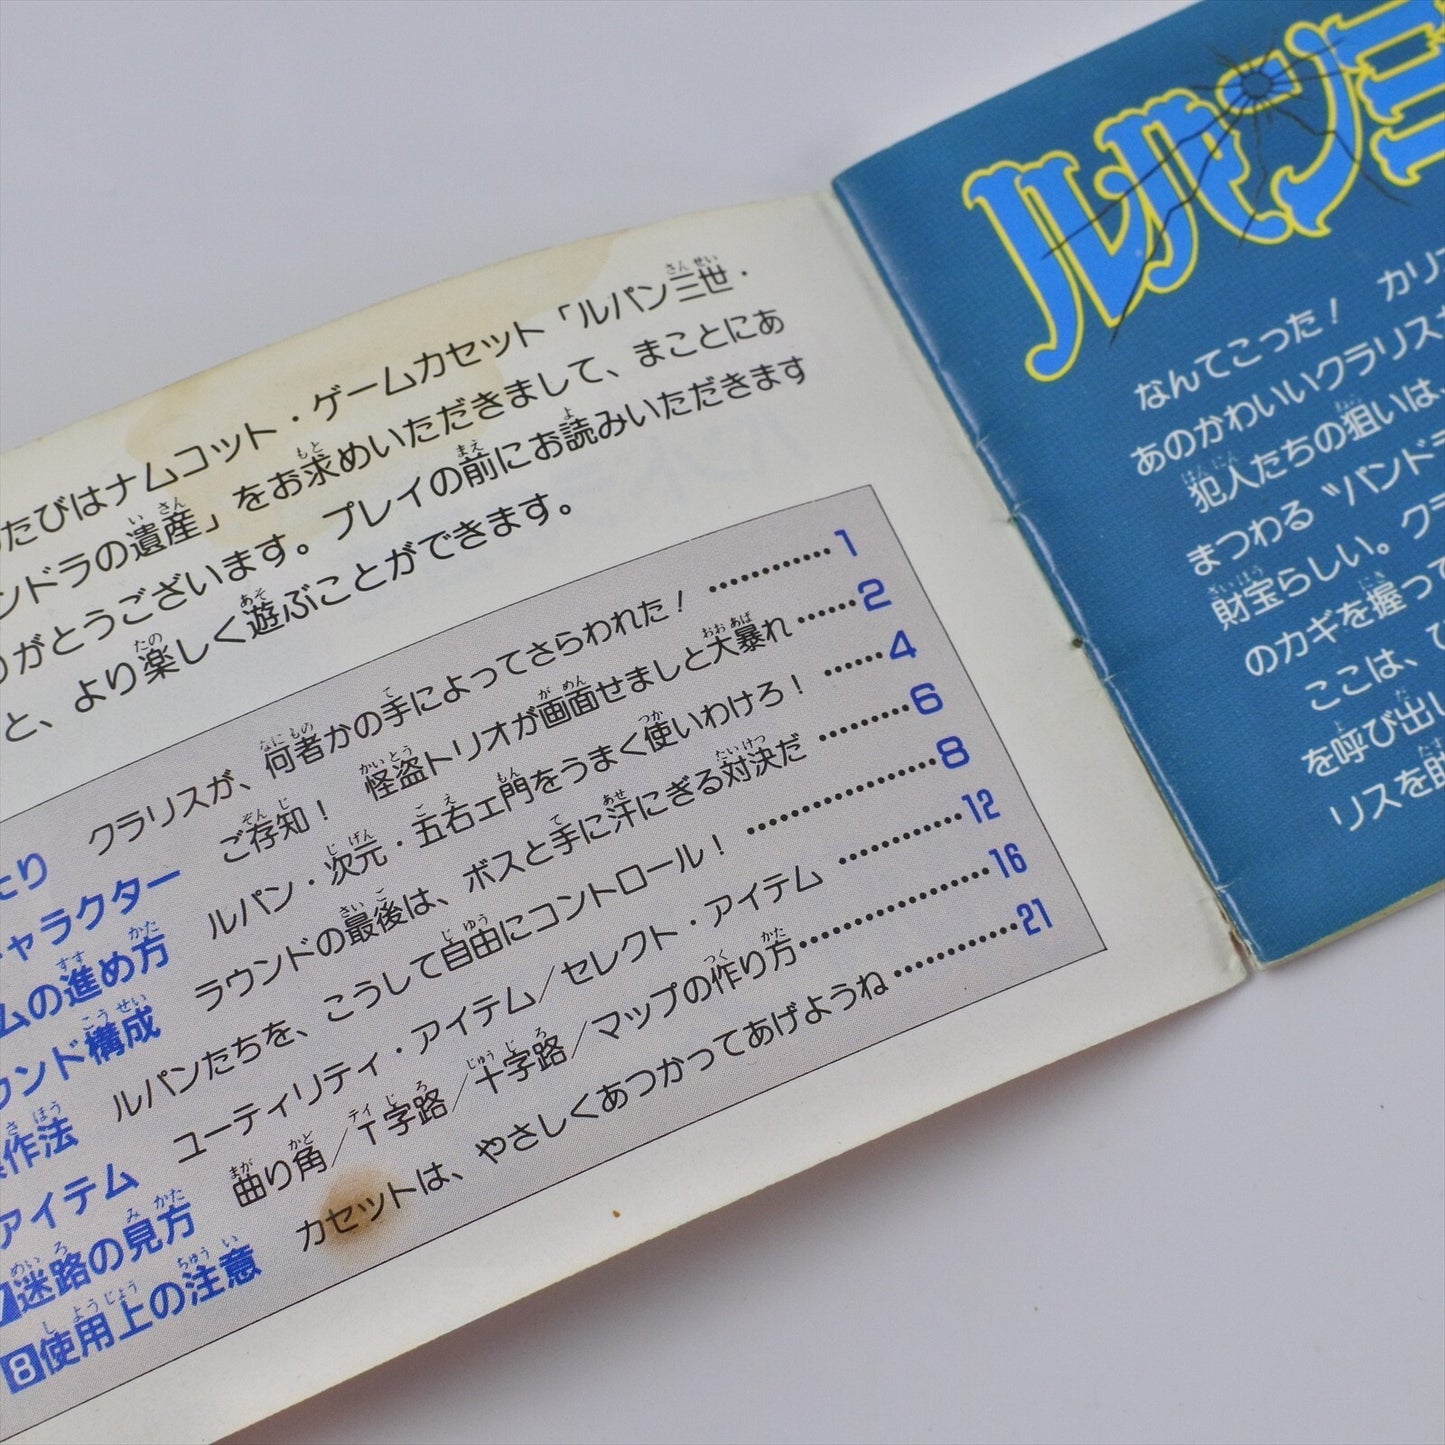 たびはナムコット・ゲームカセット「ルパン三世・
ンドラの遺産」をお求めいただきまして、まことにあ
りがとうございます。プレイの前にお読みいただきます
と、より楽しく遊ぶことができます。
たり クラリスが、何者かの手によってさらわれた！ 1
キャラクター ご存知！ 怪盗トリオが画面せましと大暴れ 2
ムの進め方 ルパン・次元・五右ェ門をうまく使いわけろ！ 4
ウンド構成 ラウンドの最後は、ボスと手に汗にぎる対決だ 6
作法 ルパンたちを、こうして自由にコントロール！ 8
アイテム ユーティリティ・アイテム/セレクト・アイテム 12
7迷路の見方 曲り角/T字路/十字路/マップの作り方 16
8使用上の注意 カセットは、やさしくあつかってあげようね 21
ルパン三
なんてこった！ カリオ
あのかわいいクラリスが
犯人たちの狙いは、
まつわる〝パンドラ
財宝らしい。クラ
のカギを握って
ここは、ひ
を呼び出し
リスを助